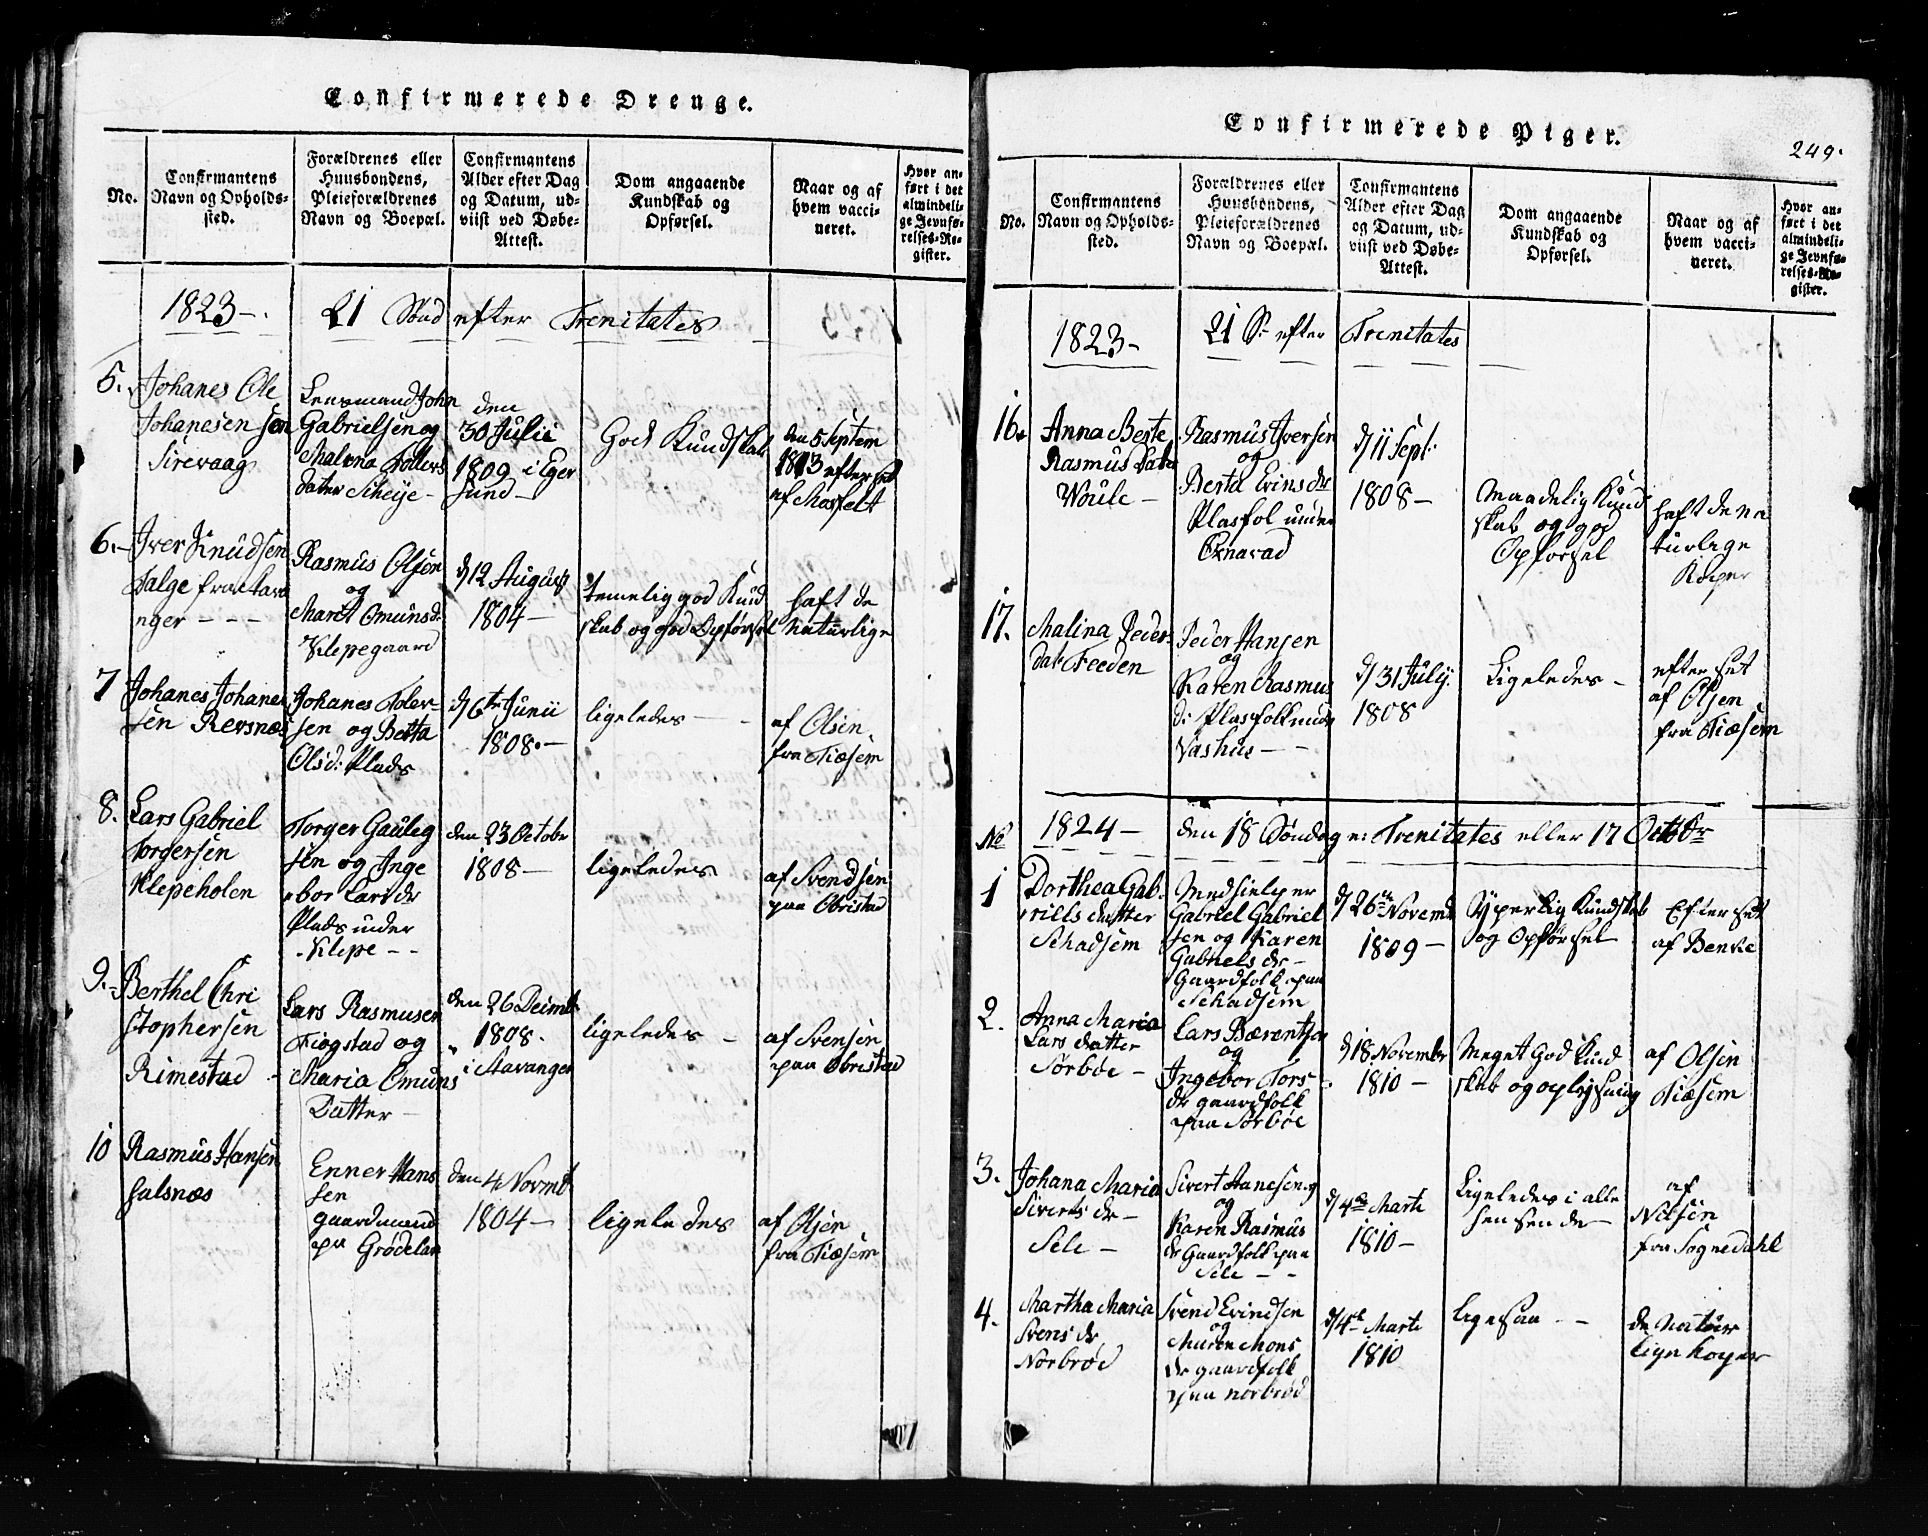 Confirmerede Drenge.
No.
Confirmantens
Navn og Opholds-
sted.
Forældrenes eller
Huusbondens,
Pleieforældrenes
Navn og Boepæl.
Confirmantens
Alder efter Dag
og Datum, ud-
viist ved Døbe-
Attest.
Dom angaaende
Kundskab og
Opførsel.
Naar og af
hvem vacci-
neret.
Hvor an-
ført i det
almindeli-
ge Jevnfø-
relses-Re-
gister.
1823 -
21 Sønd efter Trenitates
5.
Johanes Ole
Johanesen sen
Sirevaag
Lensmand John
Gabrielsen og
Malena Tollevs
dater Scheye -
den
30 Julii
1809 i Eger
sund -
God Kundskab
den 5 Septem
1813 efter set
af Mosfelt
6.
Iver Knudsen
Salge fra Stava
nger - - -
Rasmus Olsøn
og
Maret Omunsd:
Klepegaard
d/12 August
1804 -
temelig god Kund
skab og god Opførsel
haft de
Naturlige
7
Johanes Johane
sen Revsnæs
Johanes Toler-
sen og Berta
Olsd: Plads
d/6te Junii
1808. -
ligeledes -
af Olsen
fra Tiæsem
8.
Lars Gabriel
Torgersen
Klepeholen
Torger Gauleg
sen og Inge
bor Larsdr
Plads under
Klepe - -
den 23 Octobr
1808 -
ligeledes
af Svendsen
paa Obristad
9.
Berthel Chri
stophersen
Rimestad
Lars Rasmusen
Tiøgstad og
Maria Omuns
Datter -
den 26 Deimbr
1808.
i Stavanger
ligeledes -
af Svensen
paa Obristad
10
Rasmus Hansen
salsnæs
Enner Hans
sen
gaardmand
pa Grødelan
den 4 Novmb
1804 -
ligeledes
af Olsen
fra Tiæsem
Confirmerede Piger.
249.
No.
Confirmantens
Navn og Opholds-
sted.
Forældrenes eller
Huusbondens,
Pleieforældrenes
Navn og Boepæl.
Confirmantens
Alder efter Dag
og Datum, ud-
viist ved Døbe-
Attest.
Dom angaaende
Kundskab og
Opførsel.
Naar og af
hvem vacci-
neret.
Hvor an-
ført i det
almindeli-
ge Jevnfø-
relses-Re-
gister.
1823 -
21 S: efter Trenitates
16.
Anna Berte
Rasmus Dater
Woule -
Rasmus Iversen
og
Berta Evinsdr
Plasfol under
Oxnavad
d/11 Sept:
1808 -
Maadelig Kund
skab og god
Opforsel
haft de na
turlige
Koper
17.
Malina Peders
dat Feeden
Peder Hansen
og
Karen Rasmus
d: Plasfolk under
Vashus - -
d/31 July.
1808
Ligeledes -
efter set
af Olsen
fra Tiæsem
No
1824 -
den 18 Søndag e: Trenitates eller 17 Octobr
1
Dorthea Gab
riels datter
Schadsem
Medhielper
Gabriel Gabriel
sen og Karen
Gabriels dr -
Gaardfolk paa
Schadsem
d/26de Novemb
1809 -
Yperlig Kundskab
og Opførsel
Efter set
af Benke
2.
Anna Maria
Lars datter
Sørbøe -
Lars Bærentsen
og
Ingebor Tors-
dr gaardfolk
paa Sørbøe
d/18 Novembr
1810 -
Meget God Kund
skab og oplysning
af Olsen
Tiæsem
3.
Johana Maria
Siverts dr -
Sele -
Sivert Hanesen og
og
Karen Rasmus
dr Gaardfolk paa
Sele - -
d/4de Marti
1810 -
Ligeledes i alle
henseende -
af
Nilsen
fra Sognedahl
4.
Martha Maria
Svens dr
Norbrød
Svend Evindsen
og
Maren Mons
dr gaardfolk
paa Norbrød
d/4de Marti
1810
Ligesaa - -
de Natur
lign Koper